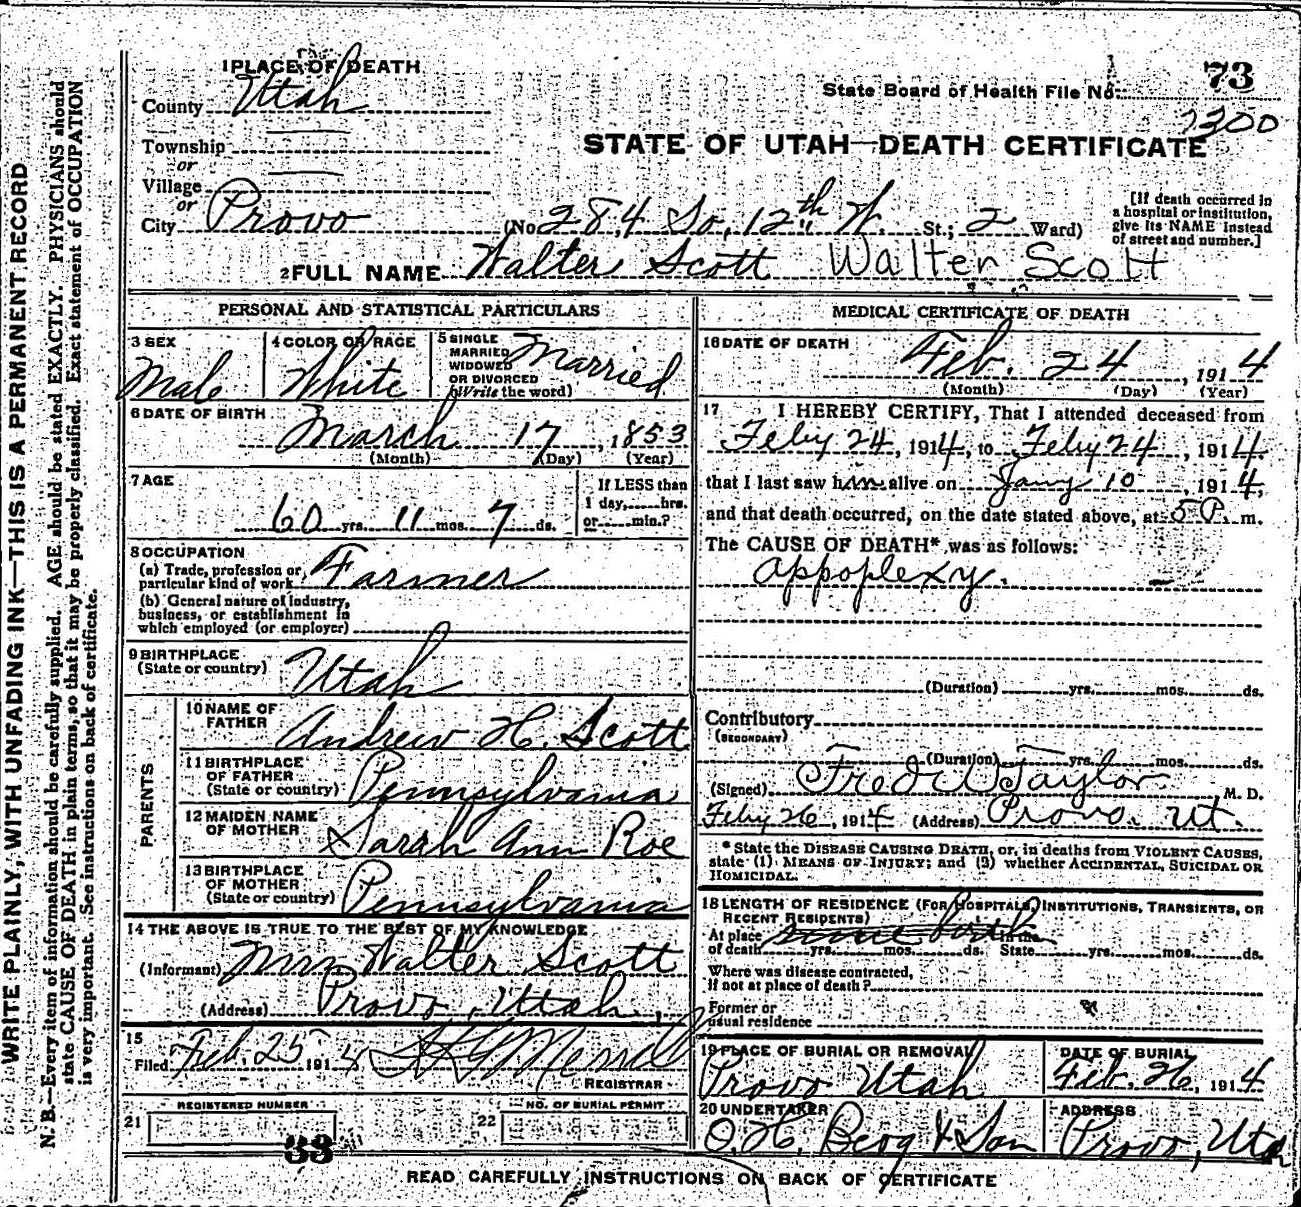 1 PLACE OF DEATH
County Utah
State Board of Health File No. 73
1300
Township
or
Village
or
STATE OF UTAH—DEATH CERTIFICATE
City Provo (No. 284 So. 12th W. St.; 2 Ward)
[If death occurred in
a hospital or institution,
give its NAME instead
of street and number.]
2 FULL NAME Walter Scott Walter Scott
PERSONAL AND STATISTICAL PARTICULARS
3 SEX
Male
4 COLOR OR RACE
White
5 SINGLE
MARRIED
WIDOWED
OR DIVORCED
(Write the word)
Married
6 DATE OF BIRTH
March 17, 1853
(Month) (Day) (Year)
7 AGE
60 yrs. 11 mos. 7 ds.
If LESS than
1 day, hrs.
or min.?
8 OCCUPATION
(a) Trade, profession or
particular kind of work Farmer
(b) General nature of industry,
business, or establishment in
which employed (or employer)
9 BIRTHPLACE
(State or country) Utah
PARENTS
10 NAME OF
FATHER Andrew H. Scott
11 BIRTHPLACE
OF FATHER
(State or country) Pennsylvania
12 MAIDEN NAME
OF MOTHER Sarah Ann Roe
13 BIRTHPLACE
OF MOTHER
(State or country) Pennsylvania
14 THE ABOVE IS TRUE TO THE BEST OF MY KNOWLEDGE
(Informant) Mrs Walter Scott
(Address) Provo, Utah,
15
Filed Feb. 25 191
REGISTRAR
21 REGISTERED NUMBER
33
22 NO. OF BURIAL PERMIT
MEDICAL CERTIFICATE OF DEATH
16 DATE OF DEATH
Feb. 24, 1914
(Month) (Day) (Year)
17 I HEREBY CERTIFY, That I attended deceased from
Feby 24, 1914, to Feby 24, 1914.
that I last saw him alive on Jany 10, 1914,
and that death occurred, on the date stated above, at 5 P. m.
The CAUSE OF DEATH* was as follows:
Appoplexy.
(Duration) yrs. mos. ds.
Contributory
(SECONDARY)
(Duration) yrs. mos. ds.
(Signed) Fred W Taylor, M. D.
Feby 26, 1914 (Address) Provo. Ut.
* State the DISEASE CAUSING DEATH, or, in deaths from VIOLENT CAUSES,
state (1) MEANS OF INJURY; and (2) whether ACCIDENTAL, SUICIDAL OR
HOMICIDAL.
18 LENGTH OF RESIDENCE (FOR HOSPITALS, INSTITUTIONS, TRANSIENTS, OR
RECENT RESIDENTS)
At place since birth In the
of death yrs. mos. ds. State yrs. mos. ds.
Where was disease contracted,
if not at place of death?
Former or
usual residence
19 PLACE OF BURIAL OR REMOVAL
Provo Utah
DATE OF BURIAL
Feb. 26, 1914
20 UNDERTAKER
O. H. Berg & Son
ADDRESS
Provo, Utah
READ CAREFULLY INSTRUCTIONS ON BACK OF CERTIFICATE
WRITE PLAINLY, WITH UNFADING INK—THIS IS A PERMANENT RECORD
N. B.—Every item of information should be carefully supplied. AGE should be stated EXACTLY. PHYSICIANS should
state CAUSE OF DEATH in plain terms, so that it may be properly classified. Exact statement of OCCUPATION
is very important. See instructions on back of certificate.